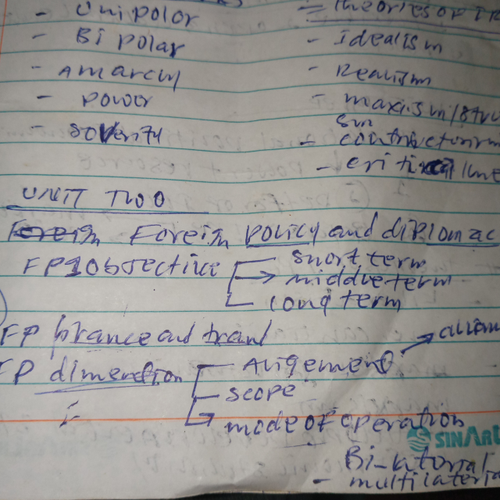 - Unipolor
- Bi polar
- Amarcy
- power
- soverity
= theories of IR
- Idealism
- Realism
- maxism/stru
sm
- constructivism
- critical
UNIT TWO
Foreign policy and diplomac
FP objective
short term
middle term
long term
FP
FP dimenstion
Aligement
scope
mode of operation
SINAR
Bi-latorial
- multilateria